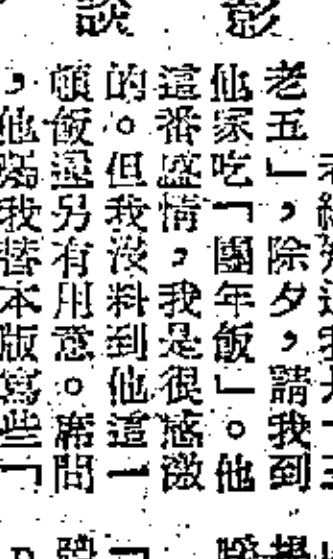 彭 談
老五」，除夕，請我到
他家吃「團年飯」。他
這番盛情，我是很感激
的。但我沒料到他這一
頓飯還另有用意。席間
，他囑我替本版寫些「